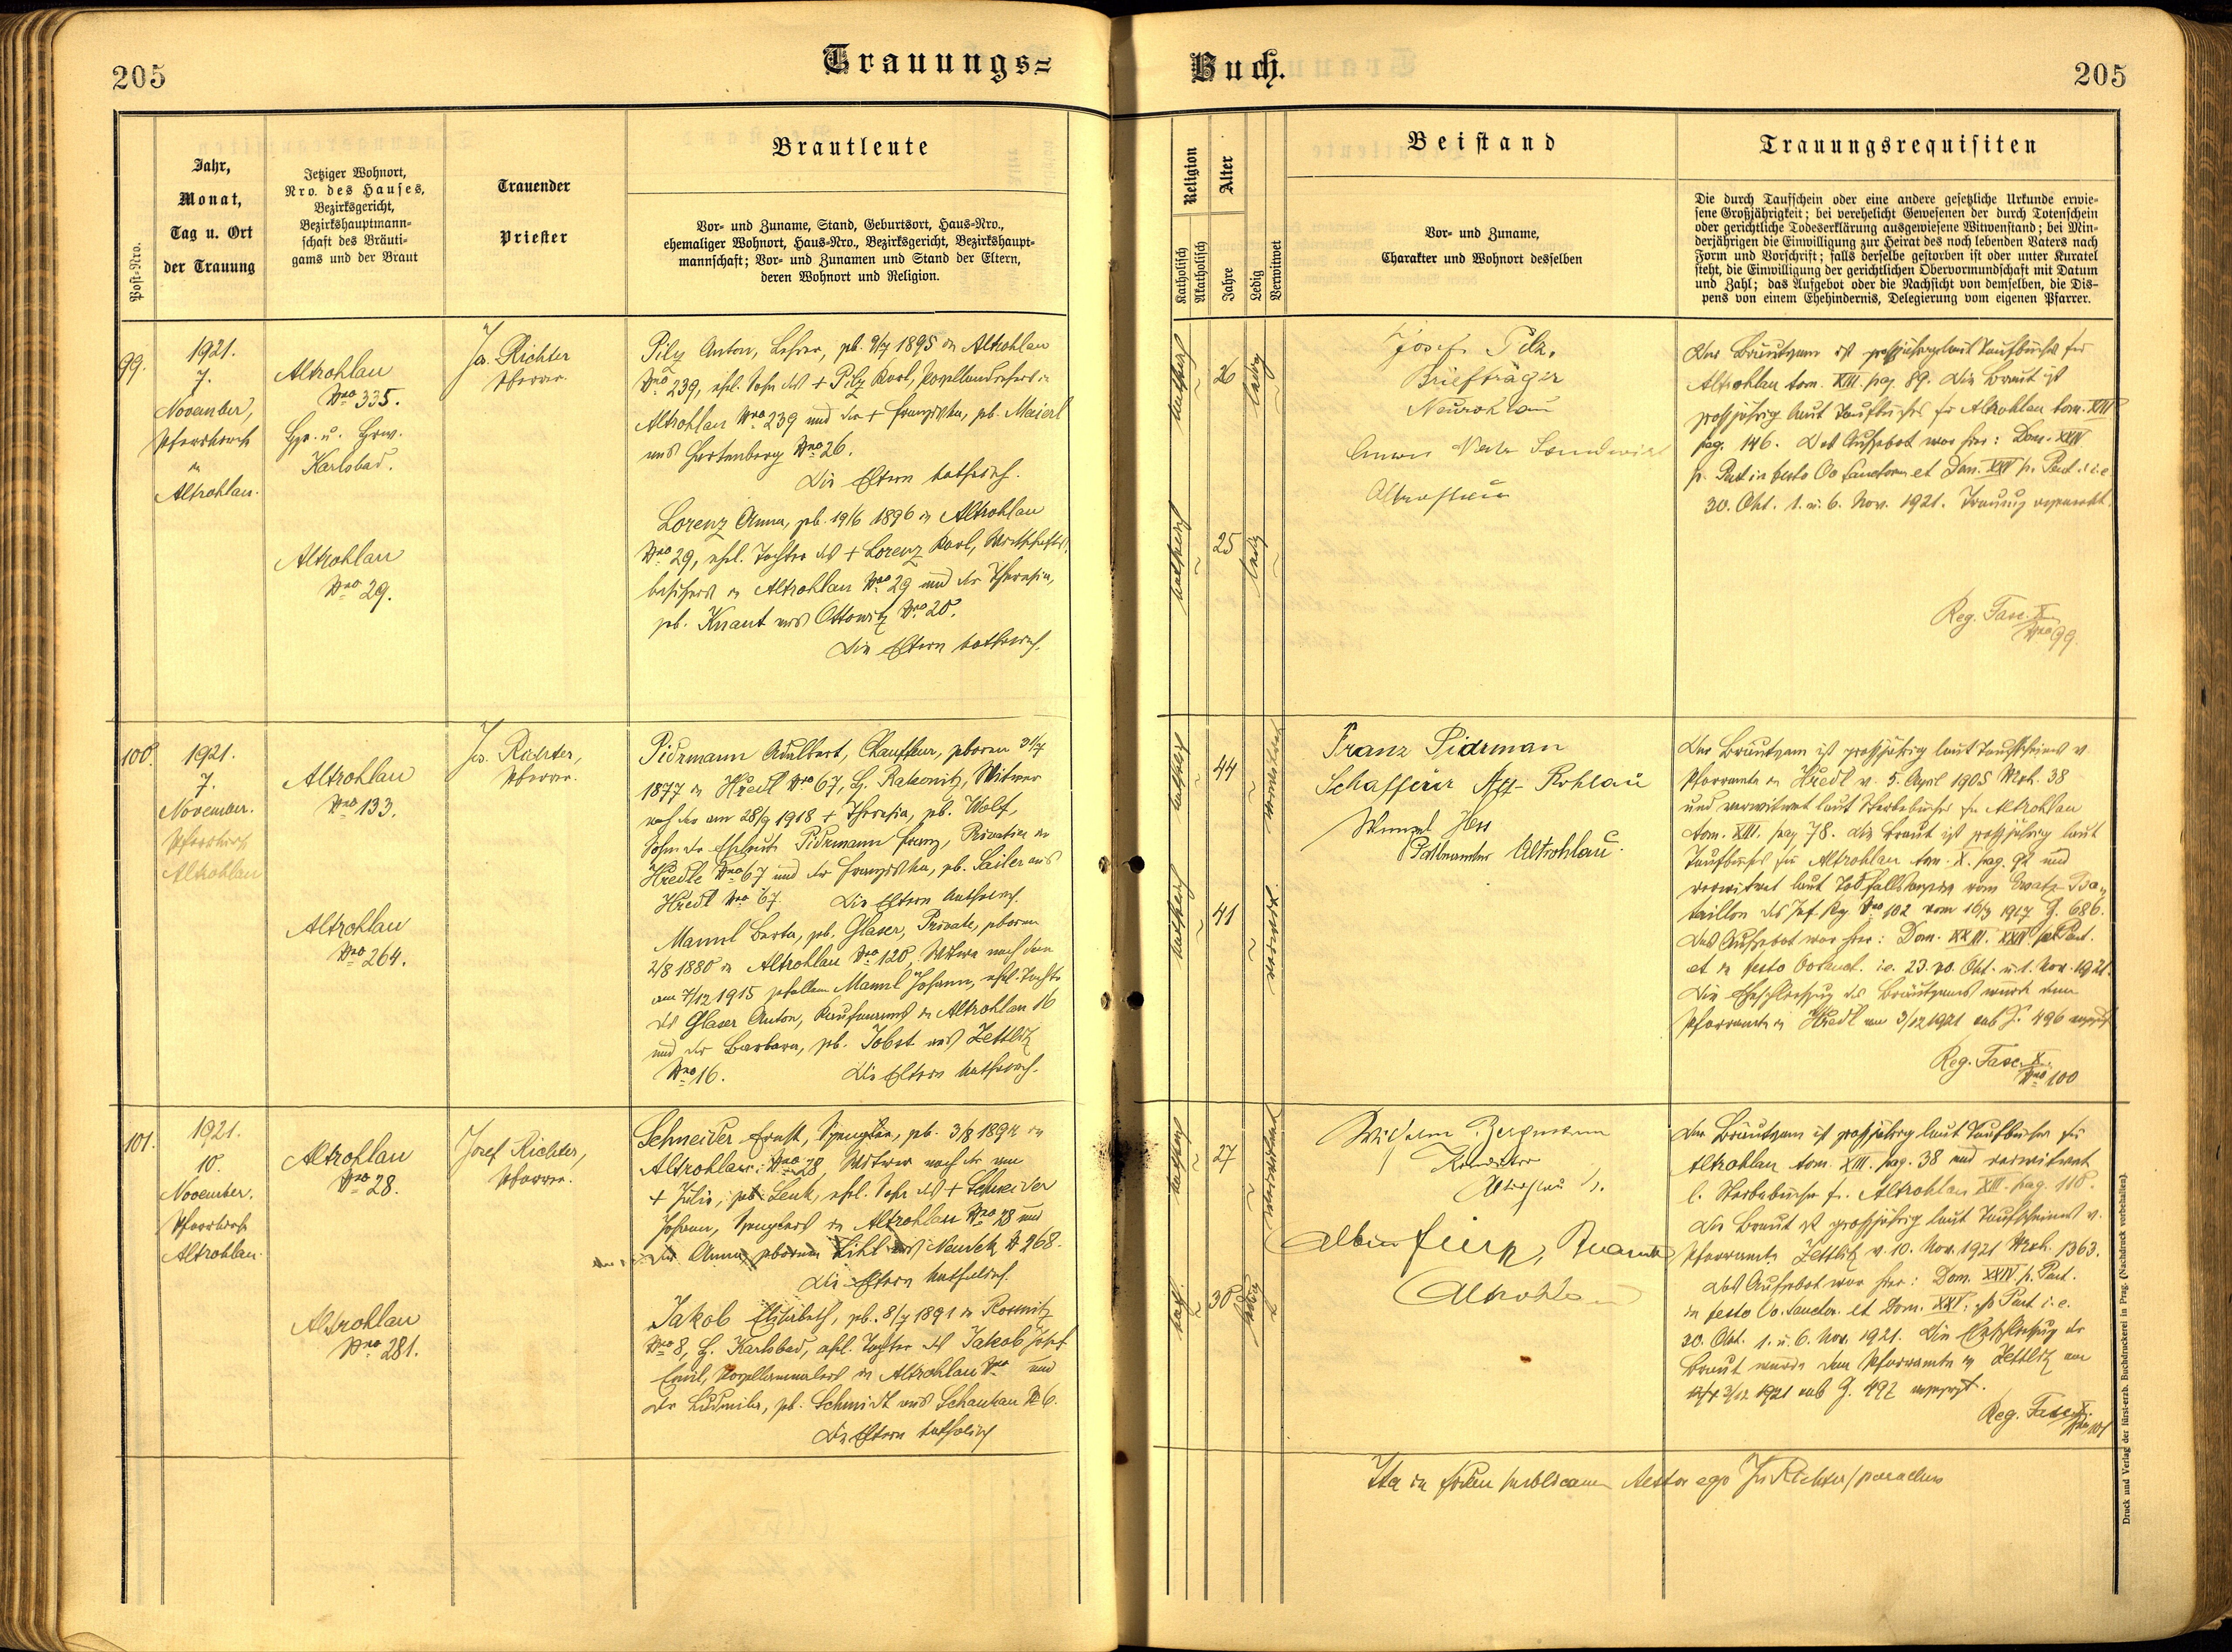 205
Trauungs=
Buch.
205
Post-Nro.
Jahr,
Monat,
Tag u. Ort
der Trauung
Jetziger Wohnort,
Nro. des Hauses,
Bezirksgericht,
Bezirkshauptmann-
schaft des Bräuti-
gams und der Braut
Trauender
Priester
Brautleute
Vor- und Zuname, Stand, Geburtsort, Haus-Nro.,
ehemaliger Wohnort, Haus-Nro., Bezirksgericht, Bezirkshaupt-
mannschaft; Vor- und Zunamen und Stand der Eltern,
deren Wohnort und Religion.
Religion
Katholisch
Akatholisch
Alter
Jahre
Ledig
Verwitwet
Beistand
Vor- und Zuname,
Charakter und Wohnort desselben
Trauungsrequisiten
Die durch Taufschein oder eine andere gesetzliche Urkunde erwie-
sene Großjährigkeit; bei verehelicht Gewesenen der durch Totenschein
oder gerichtliche Todeserklärung ausgewiesene Witwenstand; bei Min-
derjährigen die Einwilligung zur Heirat des noch lebenden Vaters nach
Form und Vorschrift; falls derselbe gestorben ist oder unter Kuratel
steht, die Einwilligung der gerichtlichen Obervormundschaft mit Datum
und Zahl; das Aufgebot oder die Nachsicht von demselben, die Dis-
pens von einem Ehehindernis, Delegierung vom eigenen Pfarrer.
99.
1921.
7.
November,
Pfarrkirche
in
Altrohlau.
Altrohlau
Nro 335.
Bg. u. Bzw.
Karlsbad.
Altrohlau
Nro 29.
Jos. Richter
Pfarrer.
Pilz Anton, Lehrer, geb. 9/7 1895 in Altrohlau
Nro 239, ehel. Sohn des + Pilz Karl, Porzellandrehers in
Altrohlau Nro 239 und der + Franziska, geb. Maierl
aus Hartenberg Nro 26.
Die Eltern katholisch.
Lorenz Anna, geb. 19/6 1896 in Altrohlau
Nro 29, ehel. Tochter des + Lorenz Karl, Wirtschafts-
besitzers in Altrohlau Nro 29 und der Theresia,
geb. Knaut aus Ottowitz Nro 20.
Die Eltern katholisch.
katholisch
26
ledig
katholisch
25
ledig
Josef Pilz,
Briefträger
Neurohlau
Landwirt
Altrohlau
Der Bräutigam ist großjährig laut Taufbuches für
Altrohlau tom. XIII. pag. 89. Die Braut ist
großjährig laut Taufbuches für Altrohlau tom. XIII
pag. 146. Das Aufgebot war hier: Dom. XXIV
p. Pent. in festo Oo Sanctorum et Dom. XXV p. Pent. i. e.
30. Okt. 1. u. 6. Nov. 1921. Trauung angemerkt.
Reg. Fasc. X
Nro 99.
100.
1921.
7.
November.
Pfarrkirche
Altrohlau
Altrohlau
Nro 133.
Altrohlau
Nro 264.
Jos. Richter,
Pfarrer.
Pidrmann Adalbert, Chauffeur, geboren 31/7
1877 in Hředl Nro 67, B. Rakonitz, Witwer
nach der am 28/9 1918 + Theresia, geb. Wolf,
Sohn der Eheleute Pidrmann Franz, Privatier in
Hředle Nro 67 und der Franziska, geb. Sailer aus
Hředl Nro 67. Die Eltern katholisch.
Mannl Berta, geb. Glaser, Private, geboren
2/8 1880 in Altrohlau Nro 120, Witwe nach dem
am 7/12 1915 gefallenen Mannl Johann, ehel. Tochter
des Glaser Anton, Kaufmanns in Altrohlau 16
und der Barbara, geb. Jobst aus Zettlitz
Nro 16. Die Eltern katholisch.
katholisch
44
verwitwet
katholisch
41
verwitw.
Franz Pidrman
Schaffeur Alt-Rohlau
Wenzel Hess
Postbeamter Altrohlau.
Der Bräutigam ist großjährig laut Taufscheines v.
Pfarramte in Hředl v. 5. April 1905 Mtrk. 38
und verwitwet laut Sterbebuches für Altrohlau
tom. XIII. pag. 78. Die Braut ist großjährig laut
Taufbuches für Altrohlau tom. X. pag. 92 und
verwitwet laut Todfallsanzeige vom Ersatz-Ba-
taillon des Inf. Rg. Nro 102 vom 16/3 1917 Z. 686.
Das Aufgebot war hier: Dom. XXIII. XXIV. p. Pent.
et in festo Oo Sanct. i. e. 23. 30. Okt. u. 1. Nov. 1921.
Die Eheschließung des Bräutigams wurde dem
Pfarramte in Hředl am 3/12 1921 sub Z. 496 angezeigt.
Reg. Fasc. X.
Nro 100
101.
1921.
10.
November.
Pfarrkirche
Altrohlau.
Altrohlau
Nro 28.
Altrohlau
Nro 281.
Josef Richter,
Pfarrer.
Schneider Ernst, Spengler, geb. 3/8 1894 in
Altrohlau Nro 28, Witwer nach der am
+ Julie, geb. Lenk, ehel. Sohn des + Schneider
Johann, Spenglers in Altrohlau Nro 28 und
der Anna, geborenen Lihl aus Neudek No 268.
Die Eltern katholisch.
Jakob Elisabeth, geb. 8/7 1891 in Rosnitz
Nro 8, B. Karlsbad, ehel. Tochter des Jakob Josef
Emil, Porzellanmalers in Altrohlau Nro und
der Ludmila, geb. Schmidt aus Schankau No 6.
Die Eltern katholisch
katholisch
27
verwitwet
kath.
30
ledig
Wilhelm Bergmann
Altrohlau
Albin
Altrohlau
Der Bräutigam ist großjährig laut Taufbuches für
Altrohlau tom. XIII. pag. 38 und verwitwet
l. Sterbebuche f. Altrohlau XIII. pag. 110.
Die Braut ist großjährig laut Taufscheines v.
Pfarramte Zettlitz v. 10. Nov. 1921 Mtrk. 1363.
Das Aufgebot war hier: Dom. XXIV. p. Pent.
in festo Oo. Sanctor. et Dom. XXV. p. Pent. i. e.
30. Okt. 1. u. 6. Nov. 1921. Die Eheschließung der
Braut wurde dem Pfarramte in Zettlitz am
3/12 1921 sub Z. 497 angezeigt.
Reg. Fasc. X.
Nro 101
Ita in fidem publicam testor ego Jos Richter / parochus
Druck und Verlag der fürst-erzb. Buchdruckerei in Prag. (Nachdruck vorbehalten).